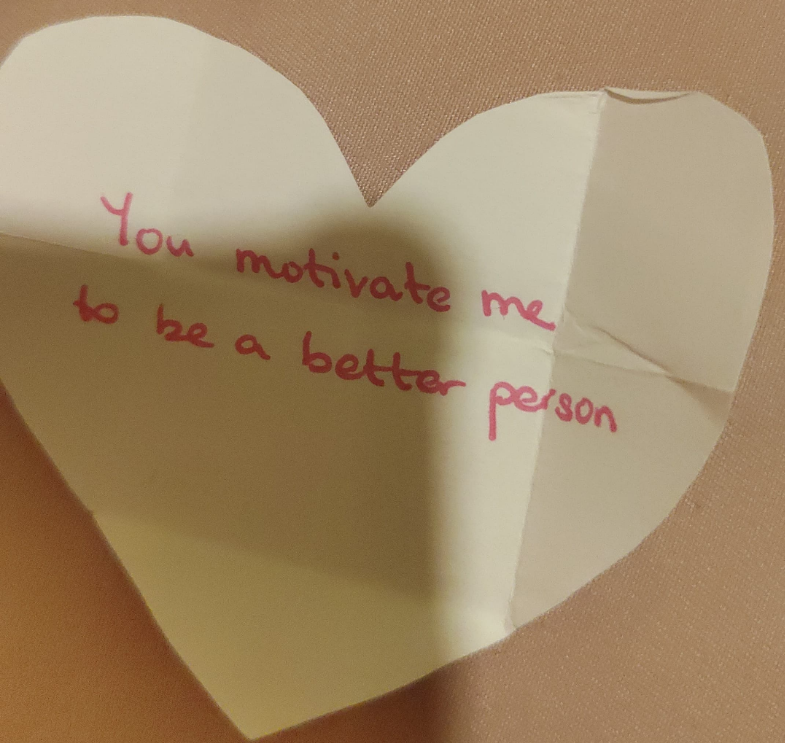 You motivate me
to be a better person